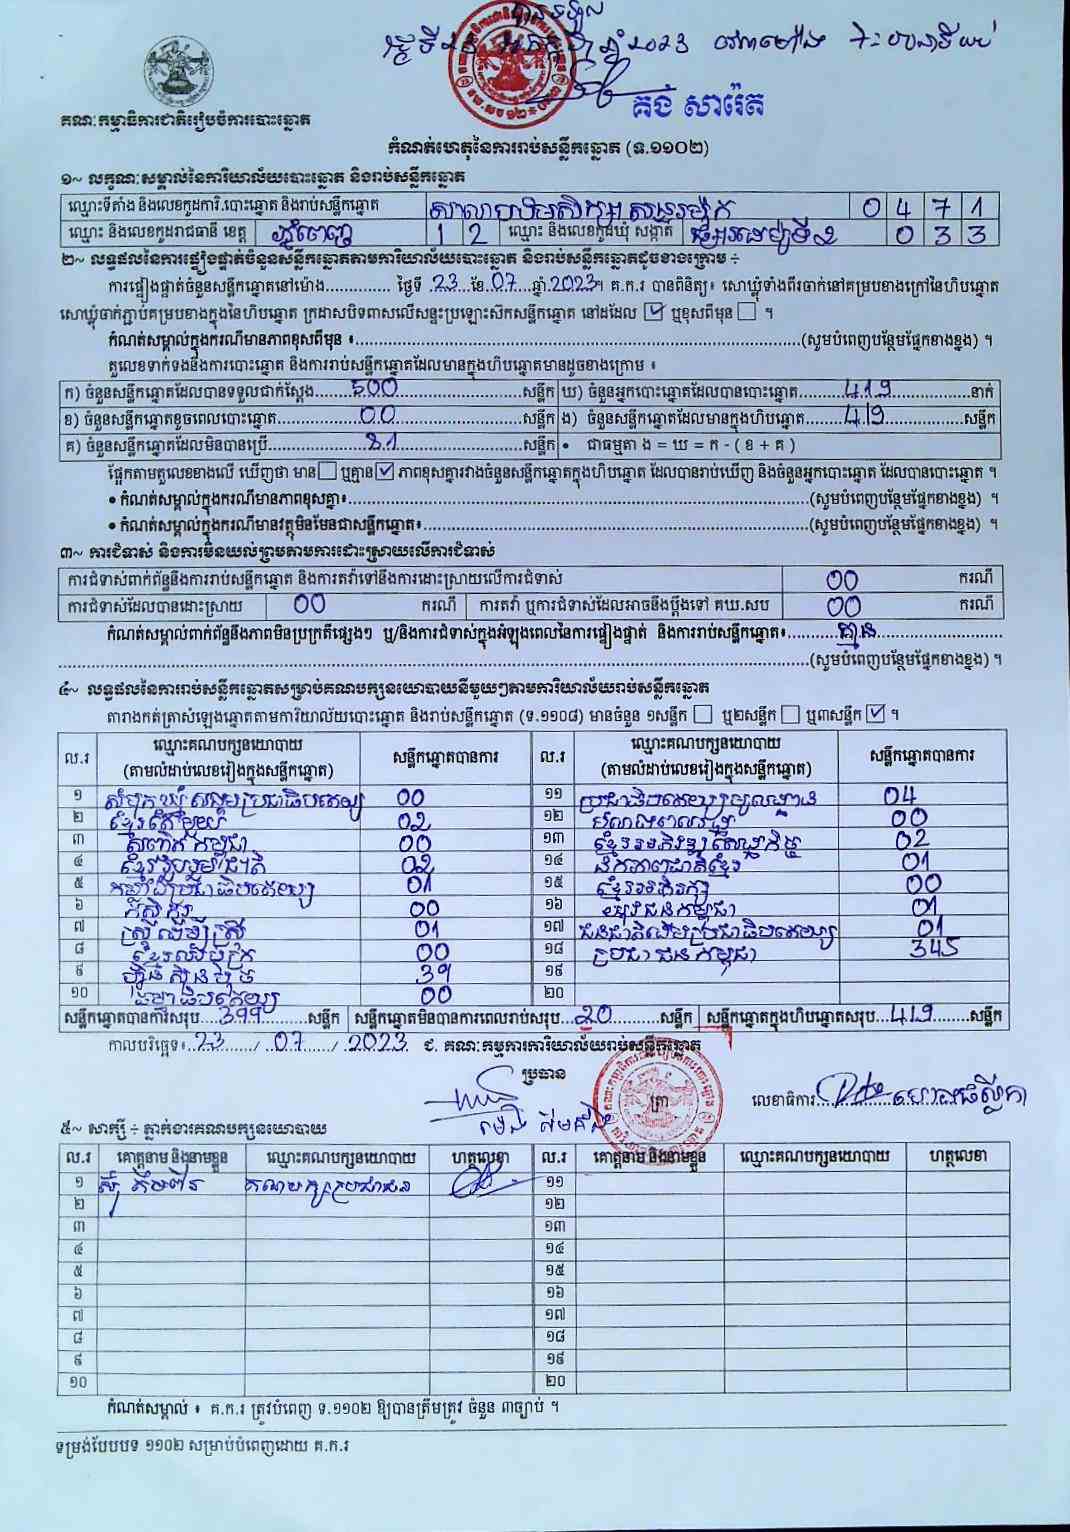 បានទទួល
ថ្ងៃទី ២៣ ឆ្នាំ ២០២៣ វេលាម៉ោង ៦: នាទីយប់
គង់ សារ៉េត
គណៈកម្មាធិការជាតិរៀបចំការបោះឆ្នោត
កំណត់ហេតុនៃការរាប់សន្លឹកឆ្នោត (ទ.១១០២)
១~ លក្ខណៈសម្គាល់នៃការិយាល័យបោះឆ្នោត និងរាប់សន្លឹកឆ្នោត
ឈ្មោះទីតាំង និងលេខកូដការិ.បោះឆ្នោត និងរាប់សន្លឹកឆ្នោត សាលាបឋមសិក្សា សន្ធរម៉ុក 0 4 7 1
ឈ្មោះ និងលេខកូដរាជធានី ខេត្ត ភ្នំពេញ 1 2 ឈ្មោះ និងលេខកូដឃុំ សង្កាត់ ផ្សារដេប៉ូទី២ 0 3 3
២~ លទ្ធផលនៃការផ្ទៀងផ្ទាត់ចំនួនសន្លឹកឆ្នោតតាមការិយាល័យបោះឆ្នោត និងរាប់សន្លឹកឆ្នោតដូចខាងក្រោម ÷
ការផ្ទៀងផ្ទាត់ចំនួនសន្លឹកឆ្នោតនៅម៉ោង.............. ថ្ងៃទី 23 ខែ 07 ឆ្នាំ 2023។ គ.ក.រ បានពិនិត្យ៖ សោឃ្លុំទាំងពីរចាក់នៅគម្របខាងក្រៅនៃហិបឆ្នោត
សោឃ្លុំចាក់ភ្ជាប់គម្របខាងក្នុងនៃហិបឆ្នោត ក្រដាសបិទពាសលើសន្ទះប្រឡោះស៊កសន្លឹកឆ្នោត នៅដដែល ☑ ឬខុសពីមុន ☐ ។
កំណត់សម្គាល់ក្នុងករណីមានភាពខុសពីមុន ៖..........(សូមបំពេញបន្ថែមផ្នែកខាងខ្នង) ។
តួលេខទាក់ទងនឹងការបោះឆ្នោត និងការរាប់សន្លឹកឆ្នោតដែលមានក្នុងហិបឆ្នោតមានដូចខាងក្រោម ៖
ក) ចំនួនសន្លឹកឆ្នោតដែលបានទទួលជាក់ស្ដែង 500 សន្លឹក ឃ) ចំនួនអ្នកបោះឆ្នោតដែលបានបោះឆ្នោត 419 នាក់
ខ) ចំនួនសន្លឹកឆ្នោតខូចពេលបោះឆ្នោត 00 សន្លឹក ង) ចំនួនសន្លឹកឆ្នោតដែលមានក្នុងហិបឆ្នោត 419 សន្លឹក
គ) ចំនួនសន្លឹកឆ្នោតដែលមិនបានប្រើ 81 សន្លឹក • ជាធម្មតា ង = ឃ = ក - ( ខ + គ )
ផ្អែកតាមតួលេខខាងលើ ឃើញថា មាន ☐ ឬគ្មាន ☑ ភាពខុសគ្នារវាងចំនួនសន្លឹកឆ្នោតក្នុងហិបឆ្នោត ដែលបានរាប់ឃើញ និងចំនួនអ្នកបោះឆ្នោត ដែលបានបោះឆ្នោត ។
• កំណត់សម្គាល់ក្នុងករណីមានភាពខុសគ្នា៖..........(សូមបំពេញបន្ថែមផ្នែកខាងខ្នង) ។
• កំណត់សម្គាល់ក្នុងករណីមានវត្ថុមិនមែនជាសន្លឹកឆ្នោត៖..........(សូមបំពេញបន្ថែមផ្នែកខាងខ្នង) ។
៣~ ការជំទាស់ និងការមិនយល់ព្រមតាមការដោះស្រាយលើការជំទាស់
ការជំទាស់ពាក់ព័ន្ធនឹងការរាប់សន្លឹកឆ្នោត និងការតវ៉ាទៅនឹងការដោះស្រាយលើការជំទាស់ 00 ករណី
ការជំទាស់ដែលបានដោះស្រាយ 00 ករណី ការតវ៉ា ឬការជំទាស់ដែលអាចនឹងប្ដឹងទៅ គឃ.សប 00 ករណី
កំណត់សម្គាល់ពាក់ព័ន្ធនឹងភាពមិនប្រក្រតីផ្សេងៗ ឬ/និងការជំទាស់ក្នុងអំឡុងពេលនៃការផ្ទៀងផ្ទាត់ និងការរាប់សន្លឹកឆ្នោត៖ គ្មាន
..........(សូមបំពេញបន្ថែមផ្នែកខាងខ្នង) ។
៤~ លទ្ធផលនៃការរាប់សន្លឹកឆ្នោតសម្រាប់គណបក្សនយោបាយនីមួយៗតាមការិយាល័យរាប់សន្លឹកឆ្នោត
តារាងកត់ត្រាសំឡេងឆ្នោតតាមការិយាល័យបោះឆ្នោត និងរាប់សន្លឹកឆ្នោត (ទ.១១០៨) មានចំនួន ១សន្លឹក ☐ ឬ២សន្លឹក ☐ ឬ៣សន្លឹក ☑ ។
ល.រ ឈ្មោះគណបក្សនយោបាយ (តាមលំដាប់លេខរៀងក្នុងសន្លឹកឆ្នោត) សន្លឹកឆ្នោតបានការ ល.រ ឈ្មោះគណបក្សនយោបាយ (តាមលំដាប់លេខរៀងក្នុងសន្លឹកឆ្នោត) សន្លឹកឆ្នោតបានការ
១ សំបុកឃ្មុំសង្គមប្រជាធិបតេយ្យ 00 ១១ ប្រជាធិបតេយ្យមូលដ្ឋាន 04
២ ខ្មែរតែមួយ 02 ១២ 00
៣ កម្ពុជា 00 ១៣ ខ្មែរអភិវឌ្ឍន៍សេដ្ឋកិច្ច 02
៤ ខ្មែររួបរួមជាតិ 02 ១៤ ឯកភាពជាតិខ្មែរ 01
៥ កម្លាំងប្រជាធិបតេយ្យ 01 ១៥ ខ្មែរអភិរក្ស 00
៦ កសិករ 00 ១៦ យុវជនកម្ពុជា 01
៧ ស្រ្តីដើម្បីស្រ្តី 01 ១៧ ជនជាតិដើមប្រជាធិបតេយ្យ 01
៨ ខ្មែរឈប់ក្រ 00 ១៨ ប្រជាជនកម្ពុជា 345
៩ ហ៊្វុនស៊ិនប៉ិច 39 ១៩
១០ ធម្មាធិបតេយ្យ 00 ២០
សន្លឹកឆ្នោតបានការសរុប 399 សន្លឹក សន្លឹកឆ្នោតមិនបានការពេលរាប់សរុប 20 សន្លឹក សន្លឹកឆ្នោតក្នុងហិបឆ្នោតសរុប 419 សន្លឹក
កាលបរិច្ឆេទ៖ 23 / 07 / 2023 ជ. គណៈកម្មការការិយាល័យរាប់សន្លឹកឆ្នោត
ប្រធាន
ត្រា
លេខាធិការ
៥~ សាក្សី ÷ ភ្នាក់ងារគណបក្សនយោបាយ
ល.រ គោត្តនាម និងនាមខ្លួន ឈ្មោះគណបក្សនយោបាយ ហត្ថលេខា ល.រ គោត្តនាម និងនាមខ្លួន ឈ្មោះគណបក្សនយោបាយ ហត្ថលេខា
១ គណបក្សប្រជាជន ១១
២ ១២
៣ ១៣
៤ ១៤
៥ ១៥
៦ ១៦
៧ ១៧
៨ ១៨
៩ ១៩
១០ ២០
កំណត់សម្គាល់ ៖ គ.ក.រ ត្រូវបំពេញ ទ.១១០២ ឱ្យបានត្រឹមត្រូវ ចំនួន ៣ច្បាប់ ។
ទម្រង់បែបបទ ១១០២ សម្រាប់បំពេញដោយ គ.ក.រ